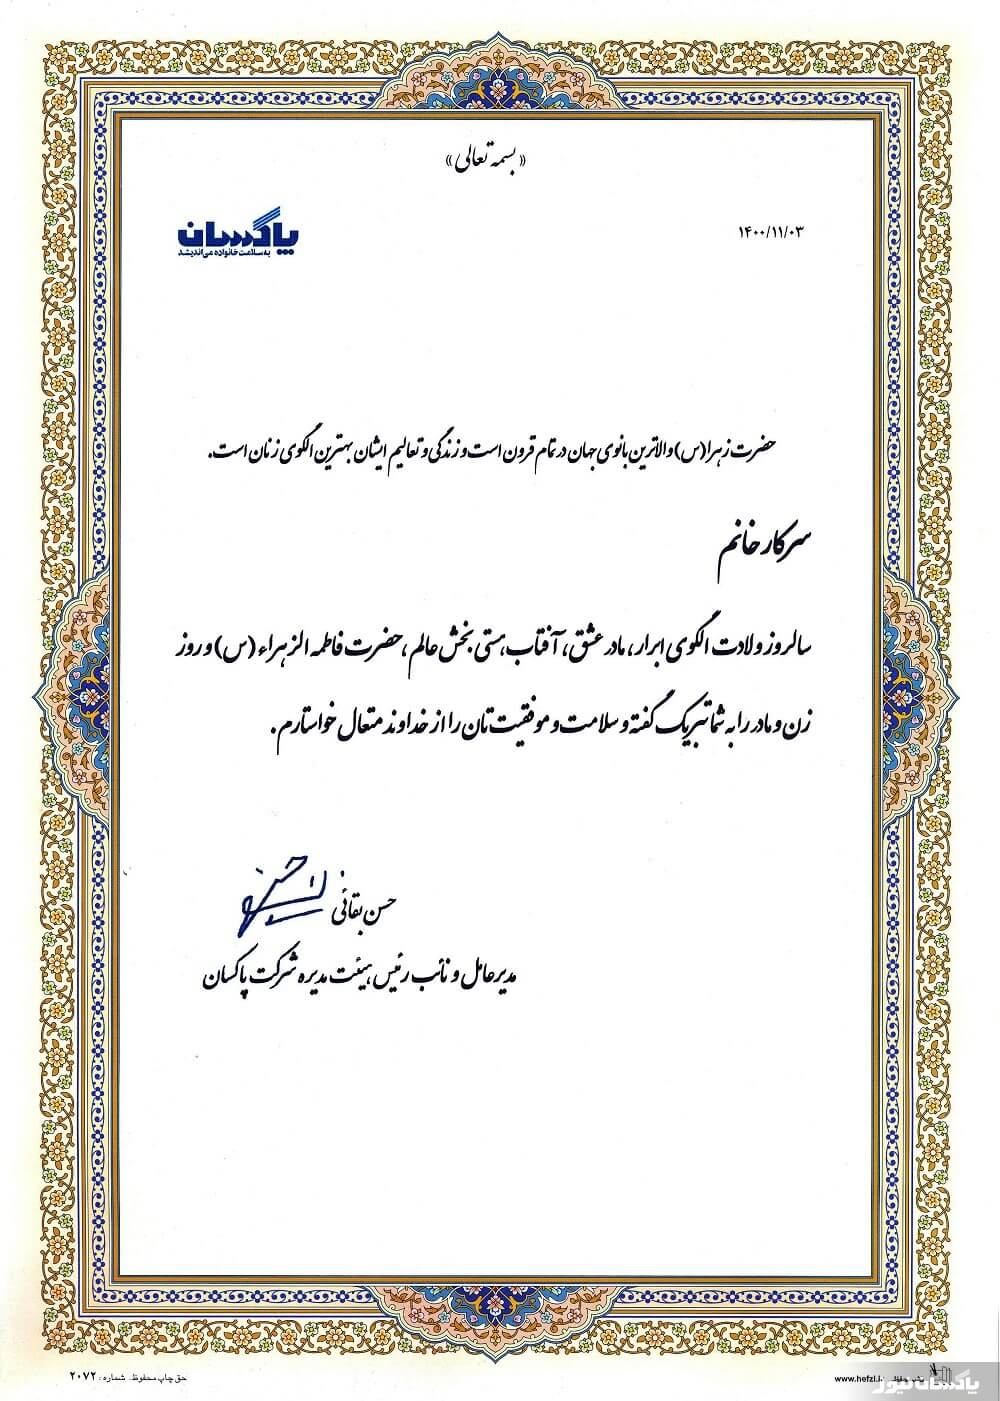 « بسمه تعالی »
۱۴۰۰/۱۱/۰۳
پاکسان
به سلامت خانواده می‌اندیشد
حضرت زهرا (س) والاترین بانوی جهان در تمام قرون است و زندگی و تعالیم ایشان بهترین الگوی زنان است.
سرکار خانم
سالروز ولادت الگوی ابرار، مادر عشق، آفتاب هستی بخش عالم، حضرت فاطمه الزهراء (س) و روز
زن و مادر را به شما تبریک گفته و سلامت و موفقیت تان را از خداوند متعال خواستارم.
حسن بقائی
مدیرعامل و نائب رئیس هیئت مدیره شرکت پاکسان
حق چاپ محفوظ. شماره: ۲۰۷۲
www.hefzi.i
پاکسان نیوز